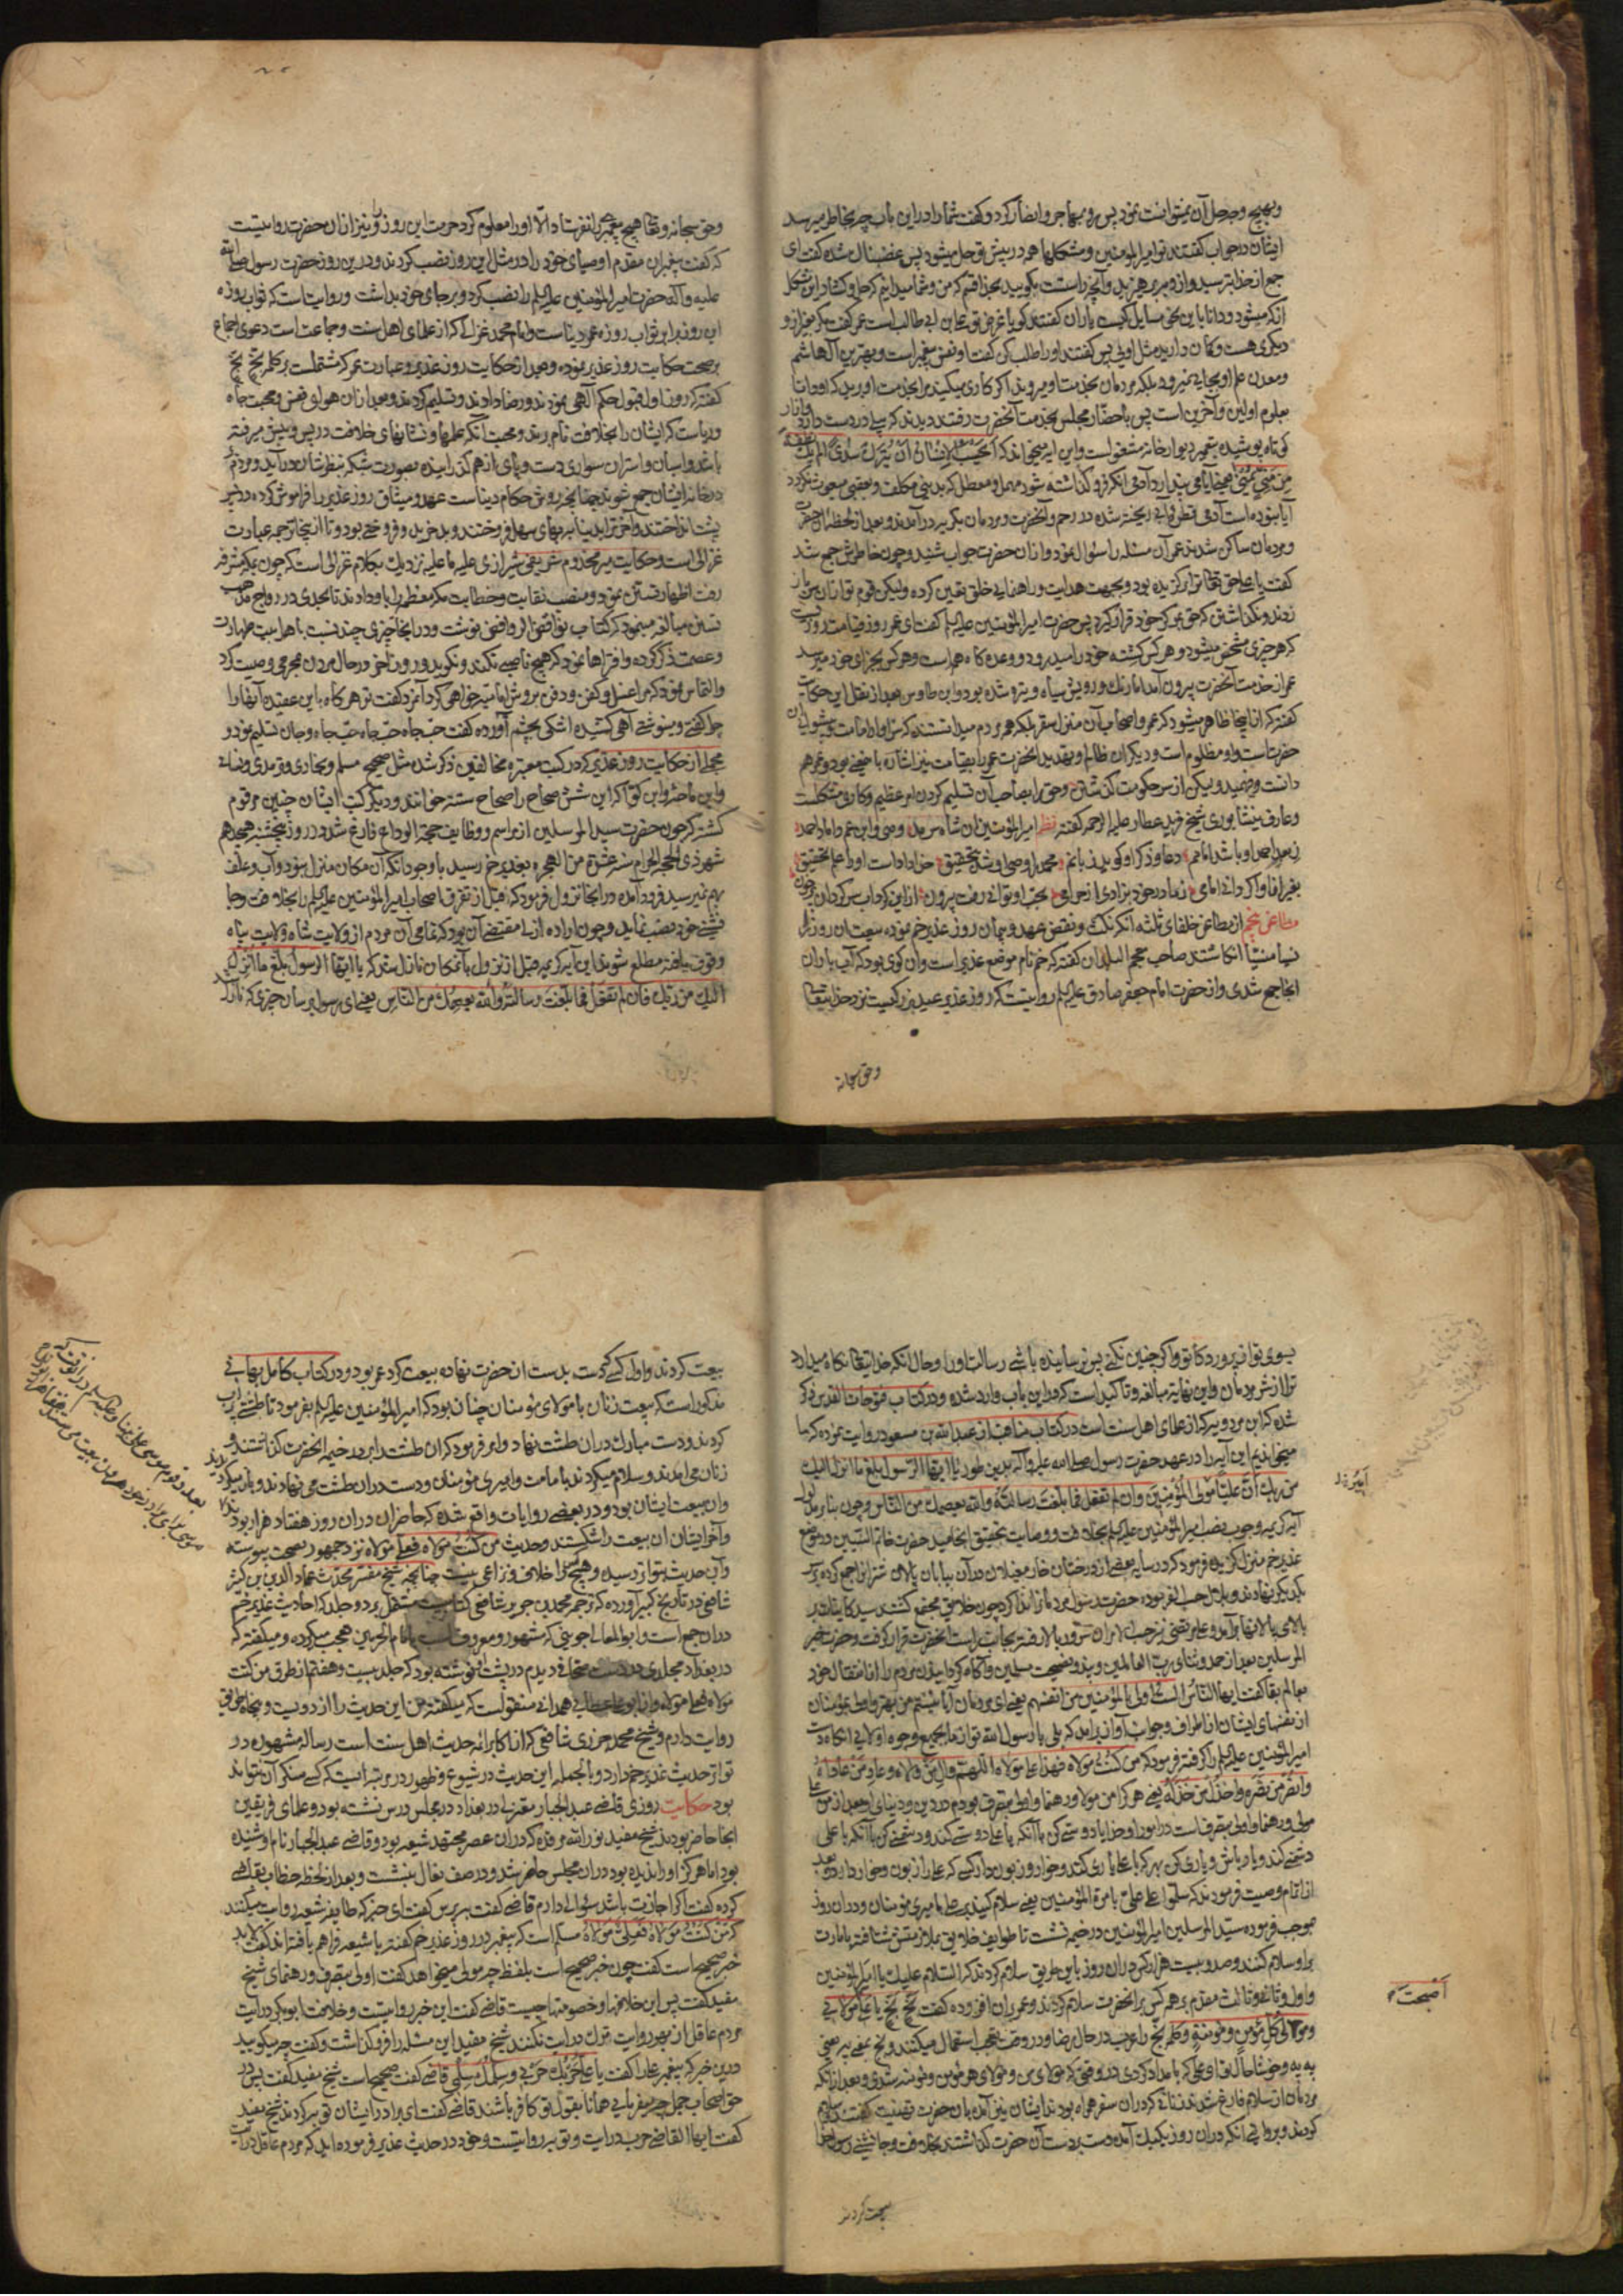 وبهیچ وجه حل آن نمیتوانست نمود پس رو بمهاجر و انصار کرد و گفت شما را در این باب چه بخاطر میرسد
ایشان در جواب گفتند تو امیرالمؤمنین و مشکلها همه در پیش تو حل میشود پس غضبناک شده گفت ای
جمع از خدا بترسید و از دروغ بپرهیزید و آنچه راستست بگویید بخدا قسم که من و شما میدانیم که حل و گشاد این مشکل
از که میشود و دانا باین نحو مسایل کیست یاران گفتند گویا غرض تو علی بن ابی طالب است عمر گفت مگر بغیر از او
دیگری هست و گمان دارید مثل اویی پس گفتند او را طلب کن گفت او نفس پیغمبر است و بهترین آل هاشم
و معدن علم او بجایی نمیرود بلکه مردمان بخدمت او میروند اگر کاری میکنید برابخدمت او برید که او دانا
بعلوم اولین و آخرین است پس باحضار مجلس بخدمت آنحضرت رفتند دیدند که بیلی در دست دارد
کوتاه پوشیده بتعمیر دیوار خانه مشغولست و این آیه میخواند که ایحسب الانسان ان یترک سدی الم یک
من منی یمنی
آیا نبوده است آدمی قطره آبی ریخته شده در رحم و آنحضرت و مردمان بگریه در آمدند و بعد از لحظه آن حضرت
و مردمان ساکن شدند عمر آن مسئله را سؤال نمود و از آن حضرت جواب شنید و چون خاطرش جمع شد
گفت یا علی حق تعالی ترا برگزیده بود و بجهت هدایت و راهنمایی خلق تعیین کرده و لیکن قوم تو از آن سر باز
زدند و نگذاشتن که حق بمرکز خود قرار گیرد پس حضرت امیرالمؤمنین علیه السلم گفت ای عمر روز قیامت روزیست
که هر چیزی مشخص میشود و هر کس کشته خود را میدرود و وعده گاه همه است و هر کس بجزای خود میرسد
عمر از خدمت آنحضرت بیرون آمد اما رنگ و رویش سیاه و تیره شده بود و ابن طاوس بعد از نقل این حکایت
گفته که از اینجا ظاهر میشود که عمر و اصحاب آن منزل سقر بلکه همه مردم میدانستند که سزاوار امامت و پیشوایی آن
حضرت است و او مظلوم است و دیگران ظالم و تهدید آنحضرت عمر را بقیامت نیز اشاره باین معنی بود و عمر هم
دانست و فهمید و لیکن از سر حکومت گذشتن و حق را بصاحب آن تسلیم کردن امر عظیم و کاری مشکلست
و عارف نیشابوری شیخ فرید عطار علیه الرحمه گفته نظم امیرالمؤمنین آن شاه سرمد وصی و ابن عم و داماد احمد
مطاعن پنجم از مطاعن خلفای ثلثه آنکه نکث و نقض عهد و پیمان روز غدیر خم نموده بیعت آن روز را
نسیا منسیا انگاشتند صاحب معجم البلدان گفته که خم نام موضع غدیر است و آن گوی بود که آب باران
آنجا جمع شدی و از حضرت امام جعفر صادق علیه السلم روایتست که روز غدیر عید بزرگیست نزد خدایتعالی
وحق سبحانه
وحق سبحانه و تعالی هیچ پیغمبر را نفرستاد الا او را معلوم کرد حرمت این روز را و نیز از آن حضرت روایتست
که گفت پیغمبران مقدم اوصیای خود را در مثل این روز نصب کردند و درین روز حضرت رسول صلی الله
علیه و آله حضرت امیرالمؤمنین علیه السلم را نصب کرد و بر جای خود بداشت و روایتست که ثواب روزه
این روز برابر ثواب روزه عمر دنیاست و امام محمد غزالی که از علمای اهل سنت و جماعت است دعوی اجماع
بر صحت حکایت روز غدیر نموده و بعد از حکایت روز غدیر و عبارت عمر که مشتملست بر کلمه بخ بخ
گفته که روز اول قبول حکم آلهی نمودند و رضا دادند و تسلیم کردند و بعد از آن هوای نفس و محبت جاه
و ریاست که ایشان را بخلافت نام برند و محبت آنکه علمها و نشانهای خلافت در پس و پیش میرفته
باشد و اسبان و استران سواری دست و پای از هم گذرانیده بصورت شبکه بنظرشان درآید و مردم
در خانه ایشان جمع شوند چنانچه روش حکام دنیاست عهد و میثاق روز غدیر را فراموش کرده در پس
پشت انداختند و آخرت ابدی را به بهای سهل فروختند و بد خرید و فروختی بود و تا از اینجا ترجمه عبارت
غزالی است و حکایت میر مخدوم شریفی شیرازی علیه ما علیه نزدیک بکلام غزالی است که چون بمکه مشرفه
رفت اظهار تسنن نمود و منصب نقابت و خطابت مکه معظمه را باو دادند تا بحدی در رواج مذهب
تسنن مبالغه مینمود که کتاب نواقض الروافض نوشت و در آنجا چیزی چند نسبت با هل بیت طهارت
و عصمت ذکر کرده و افتراها نمود که هیچ ناصبی نکند و نگوید و روز آخر در حال مردن بمحرمی وصیت کرد
و التماس نمود که مرا غسل و کفن و دفن بروش امامیه خواهی کرد آنمرد گفت تو هرگاه باین عقیدۀ آنها را
چرا گفتی و مینوشتی آهی کشیده اشکی بچشم آورده گفت حب جاه حب جاه حب جاه و جان تسلیم نمود و
مجملا از حکایت روز غدیر که در کتب معتبره مخالفین ذکر شده مثل صحیح مسلم و بخاری و ترمدی و نسائی
و ابن ماجه و ابن کوا که این شش صحاح را صحاح سته خوانند و دیگر کتب ایشان چنین مرقوم
گشته که چون حضرت سید المرسلین از مراسم و وظایف حجة الوداع فارغ شد و در روز پنجشنبه هیجدهم
شهر ذی الحجة الحرام سنه عشرة من الهجره بغدیر خم رسید با وجود آنکه آن مکان منزل نبود و آب و علف
بهم نمیرسید فرود آمده در آنجا نزول فرمود که قبل از تفرق اصحاب امیرالمؤمنین علیه السلم را بخلافت و جا
نشینی خود نصب نماید و چون اراده ازلی مقتضی آن بود که تمامی آن مردم از ولایت شاه ولایت پناه
وقوف یافته مطلع شوند این آیه کریمه قبل از نزول بآنمکان نازل شد که یا ایها الرسول بلغ ما انزل
الیک من ربک فان لم تفعل فما بلغت رسالته و الله یعصمک من الناس یعنی ای رسول برسان چیزی که نازل شد
بسوی تو از پروردگار تو و اگر چنین نکنی پس نرسانیده باشی رسالت او را و حال آنکه خدایتعالی نگاه میدارد
ترا از شر مردمان و این نهایة مبالغه و تاکید است که در این باب وارد شده و در کتاب فتوحات القدس ذکر
شده که ابن مردویه که از علمای اهل سنت است در کتاب مناقب از عبدالله بن مسعود روایت نموده که ما
میخواندیم این آیه را در عهد حضرت رسول صلی الله علیه و آله بدین طور یا ایها الرسول بلغ ما انزل الیک
من ربک ان علیا مولی المؤمنین و ان لم تفعل فما بلغت رسالته و الله یعصمک من الناس و چون بنا بر مدلول
آیه کریمه وجوب نصب امیرالمؤمنین علیه السلم بخلافت و وصایت تحقیق انجامید حضرت خاتم النبیین در موضع
غدیر خم منزل گزیده فرمود که در سایه بعضی از درختان خار مغیلان در آن بیابان پالان شتران جمع کرده بر
یکدیگر نهادند و بلال حسب الفرموده حضرت رسول مردم را ندا کرد چون خلایق مجتمع گشتند سید کاینات بر
بالای پالانها بر آمد و علی مرتضی نیز حسب الامر آن سرور بالا رفته بجانب راست آنحضرت قرار گرفت و حضرت خیر
المرسلین بعد از حمد و ثنای رب العالمین و پند و نصیحت مسلمین و آگاه گردانیدن مردم را از انتقال خود
بعالم بقا گفت ایها الناس الست اولی بالمؤمنین من انفسهم یعنی ای مردمان آیا نیستم من بهتر و اولی بمؤمنان
از نفسهای ایشان از اطراف و جوانب آواز برآمد که بلی یا رسول الله تو از ما بجمیع وجوه اولایی آنگاه دست
امیرالمؤمنین علیه السلم را گرفته فرمود که من کنت مولاه فهذا علی مولاه اللهم وال من والاه و عاد من عاداه
وانصر من نصره و اخذل من خذله یعنی هر که من مولا و رهنما و اولی بتصرف بودم در دین و دنیای او بعد از من علی
مولی و رهنما و اولی بتصرف است در امور او خدایا دوستی کن با آنکه با علی دوستی کند و دشمنی کن با آنکه با علی
دشمنی کند و یار باش و یاری کن بهر که با علی یاری کند و خوار و زبون دار کسی که علی را زبون و خوار دارد و بعد
از اتمام وصیت فرمودند که سلموا علی علی بامرة المؤمنین یعنی سلام کنید بر علی بامیری مؤمنان و در آن روز
موجب فرموده سید المرسلین امیرالمؤمنین در خیمه نشست تا طوایف خلایق بملازمتش شتافته بامارت
بر او سلام کنند و صد و بیست هزار کس در آن روز باین طریق سلام کردند که السلام علیک یا امیرالمؤمنین
و اول و ثانی و ثالث مقدم بر همه کس بر آنحضرت سلام کردند و عمر بر آن افزوده گفت بخ بخ یا علی مولایی
و مولی کل مؤمن و مؤمنة و کلمه بخ را عرب در حال رضا و در وقت تعجب استعمال میکنند و بخ بخ یعنی
به به و خوشا حال تو ای علی که بامداد کردی در وقتی که مولای من و مولای هر مؤمن و مؤمنه شدی و بعد از آنکه
مردمان از سلام فارغ شدند زنانی که در آن سفر همراه بودند ایشان نیز آمده بآن حضرت تهنیت گفتند سلام
کردند و بروایتی آنکه در آن روز یکیک آمده دست بر دست آن حضرت گذاشتند بخلافت و جانشینی رسول خدا
بیعت کردند
اصبحت
بیعت کردند و اول کسی که دست بدست آن حضرت نهاده بیعت کرد عمر بود و در کتاب کامل بهایی
مذکور است که بیعت زنان با مولای مؤمنان چنان بود که امیرالمؤمنین علیه السلم بفرمود تا طشتی پر آب
کردند و دست مبارک در آن طشت نهاد و امر فرمود که آن طشت را بر در خیمه آنحضرت گذاشتند و
زنان می آمدند و سلام میکردند بامامت و امیری مؤمنان و دست در آن طشت می نهادند و باز میگردیدند
و آن بیعت ایشان بود و در بعضی روایات واقع شده که حاضران در آن روز هفتاد هزار بودند
و آخر ایشان آن بیعت را شکستند و حدیث من کنت مولاه فعلی مولاه نزد جمهور بصحت پیوسته
و آن حدیث بتواتر رسیده و هیچکس را خلاف و نزاعی نیست چنانچه شیخ مفسر محدث عماد الدین بن کثیر
شافعی در تاریخ کبیر آورده که ترجمه محمد بن جریر شافعی کتابیست مشتمل بر دو جلد که احادیث غدیر خم
در آن جمع است و ابو المعالی جوینی که مشهور و معروفست بامام الحرمین تعجب میکرده و میگفته که
در بغداد مجلدی در دست صحافی دیدم در پشت او نوشته بود که جلد بیست و هفتم از طرق من کنت
مولاه فعلی مولاه و از ابو علی عطائی همدانی منقولست که میگفته من این حدیث را از دویست و پنجاه طریق
روایت دارم و شیخ محمد جزری شافعی که از اکابر ائمه حدیث اهل سنت است رساله مشهوره در
تواتر حدیث غدیر خم دارد و بالجمله این حدیث در شیوع و ظهور در مرتبه ایست که کسی منکر آن نتواند
بود حکایت روزی قاضی عبدالجبار معتزلی در بغداد در مجلس درس نشسته بود و علمای فریقین
آنجا حاضر بودند شیخ مفید نور الله مرقده که در آن عصر مجتهد شیعه بود و قاضی عبدالجبار نام او شنیده
بود اما هرگز او را ندیده بود در آن مجلس حاضر شد و در صف نعال بنشست و بعد از لحظه خطاب بقاضی
کرده گفت اگر اجازت باشد سؤالی دارم قاضی گفت بپرس گفت این خبر که طایفه شیعه روایت میکنند
که من کنت مولاه فعلی مولاه مسلم است که پیغمبر در روز غدیر خم گفته یا شیعه فراهم بافته اند گفت
خبر صحیح است گفت چون خبر صحیح است بلفظ چه مولی میخواهد گفت اولی بتصرف و رهنمای شیخ
مفید گفت پس این خلافها و خصومتها چیست قاضی گفت این خبر روایتست و خلافت ابوبکر درایت
مردم عاقل از بهر روایت ترک درایت نکنند شیخ مفید این مسئله را فرو گذاشت و گفت چه میگویید
درین خبر که پیغمبر علی را گفت یا علی حربک حربی و سلمک سلمی قاضی گفت صحیح است شیخ مفید گفت پس در
حق اصحاب جمل چه میفرمایی همانا بقول تو کافر باشند قاضی گفت ای برادر ایشان توبه کردند شیخ مفید
گفت ایها القاضی حرب درایت و توبه روایتست و خود در حدیث غدیر فرموده اید که مردم عاقل درایت